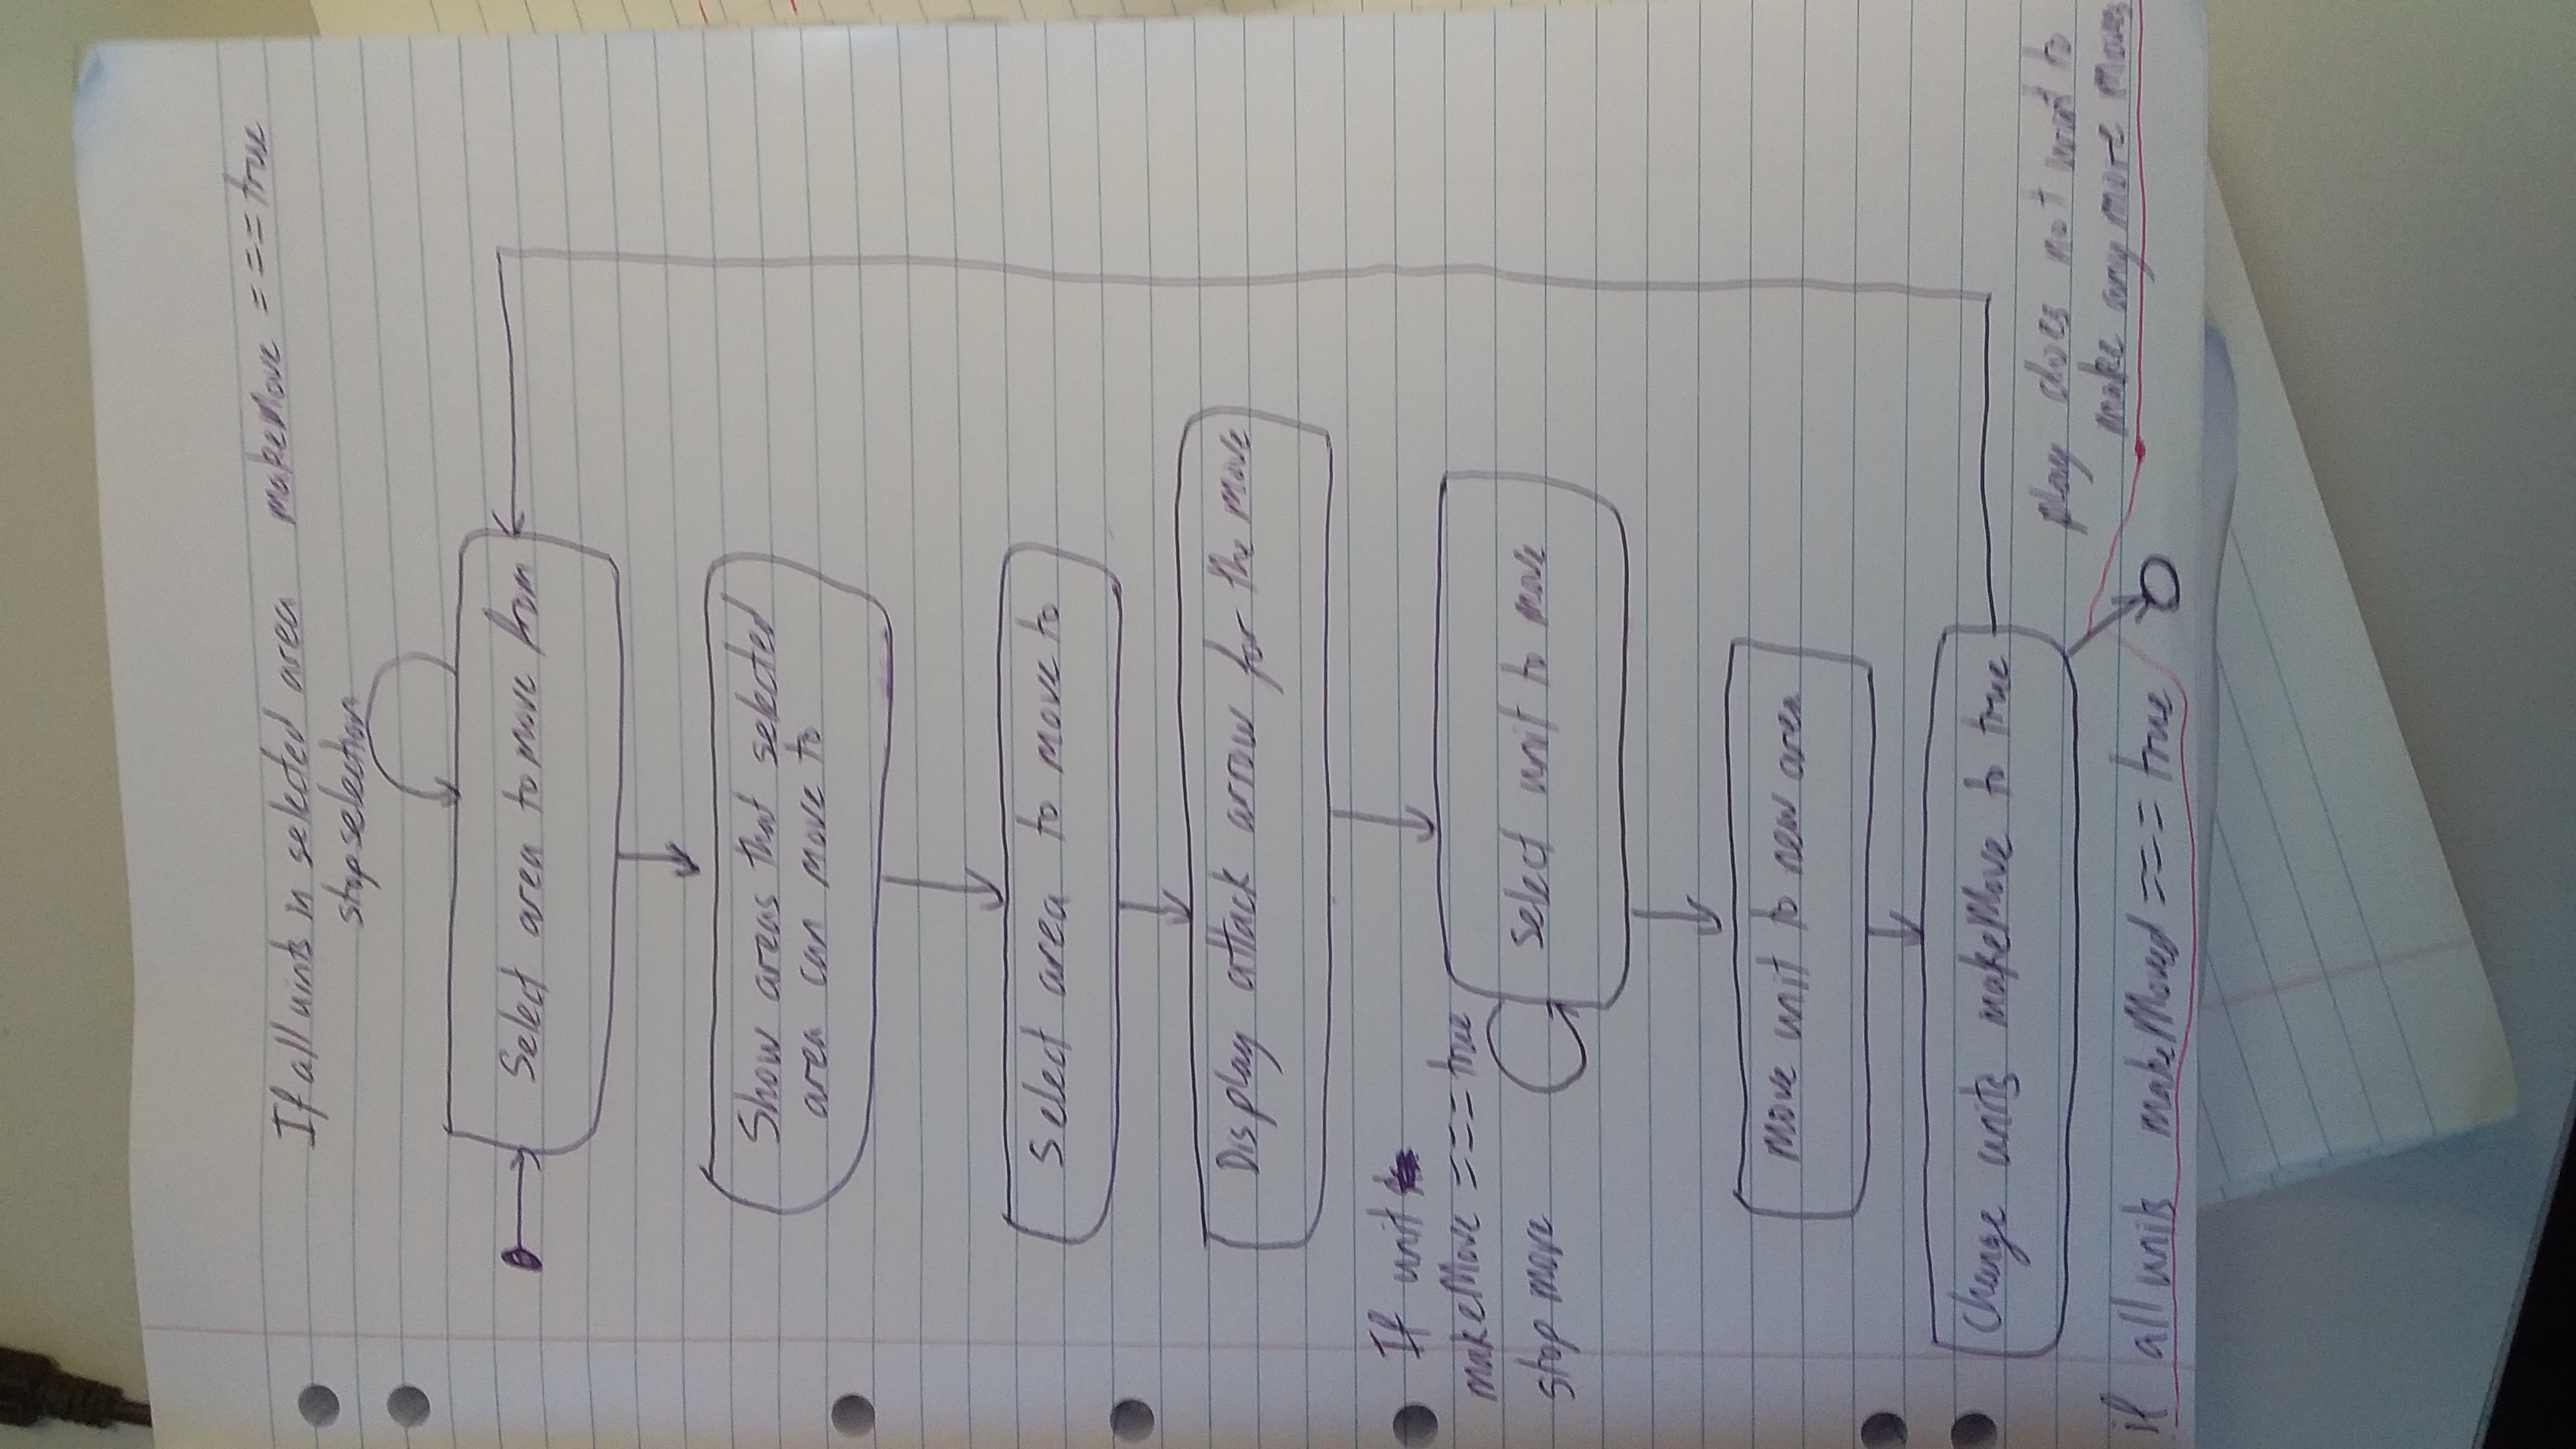 If all uints in selected area makeMove === true
stop selection
Select area to move from
Show areas that selected
area can move to
Select area to move to
Display attack arrow for the move
If unit
makeMove === true
stop move
Select unit to move
Move unit to new area
Change units makeMove to true
play does not want to
make any more moves
if all units makeMoved === true